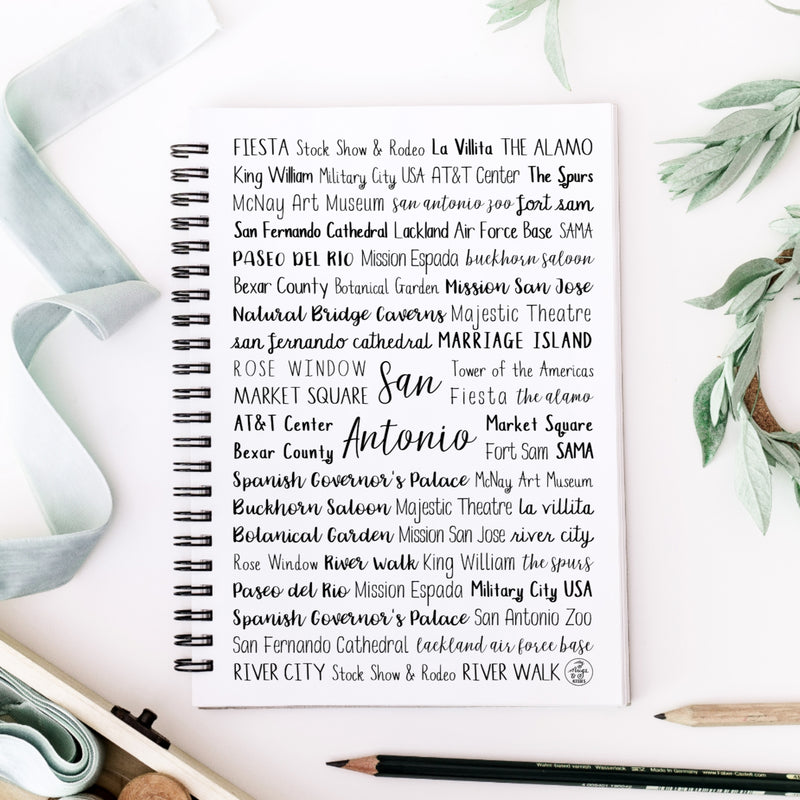 FIESTA Stock Show & Rodeo La Villita THE ALAMO
King William Military City USA AT&T Center The Spurs
McNay Art Museum san antonio zoo fort sam
San Fernando Cathedral Lackland Air Force Base SAMA
PASEO DEL RIO Mission Espada buckhorn saloon
Bexar County Botanical Garden Mission San Jose
Natural Bridge Caverns Majestic Theatre
san fernando cathedral MARRIAGE ISLAND
ROSE WINDOW Tower of the Americas
San
MARKET SQUARE Fiesta the alamo
AT&T Center Market Square
Antonio
Bexar County Fort Sam SAMA
Spanish Governor's Palace McNay Art Museum
Buckhorn Saloon Majestic Theatre la villita
Botanical Garden Mission San Jose river city
Rose Window River Walk King William the spurs
Paseo del Rio Mission Espada Military City USA
Spanish Governor's Palace San Antonio Zoo
San Fernando Cathedral lackland air force base
RIVER CITY Stock Show & Rodeo RIVER WALK
Water-based varnish Wasserlack Made in Germany www.Faber-Castell.com